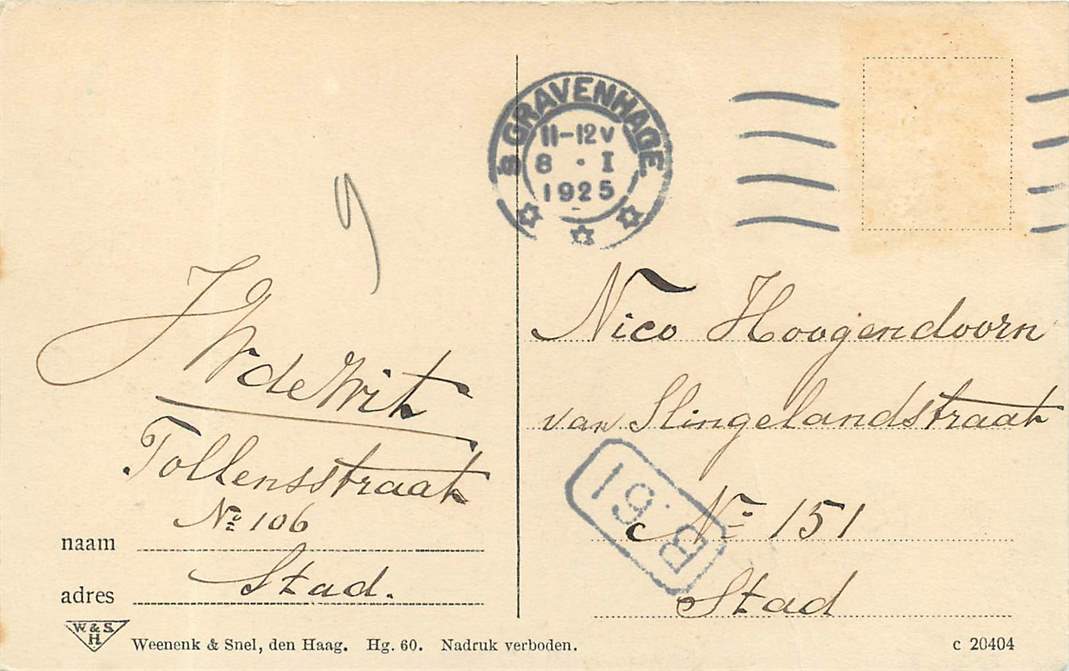 'S GRAVENHAGE
11-12V
8 · I
1925
9
J W de Wit
Tollensstraat
No 106
Stad.
naam
adres
Nico Hoogendoorn
van Slingelandstraat
No 151
Stad
W. & S.
H.
Weenenk & Snel, den Haag. Hg. 60. Nadruk verboden.
c 20404